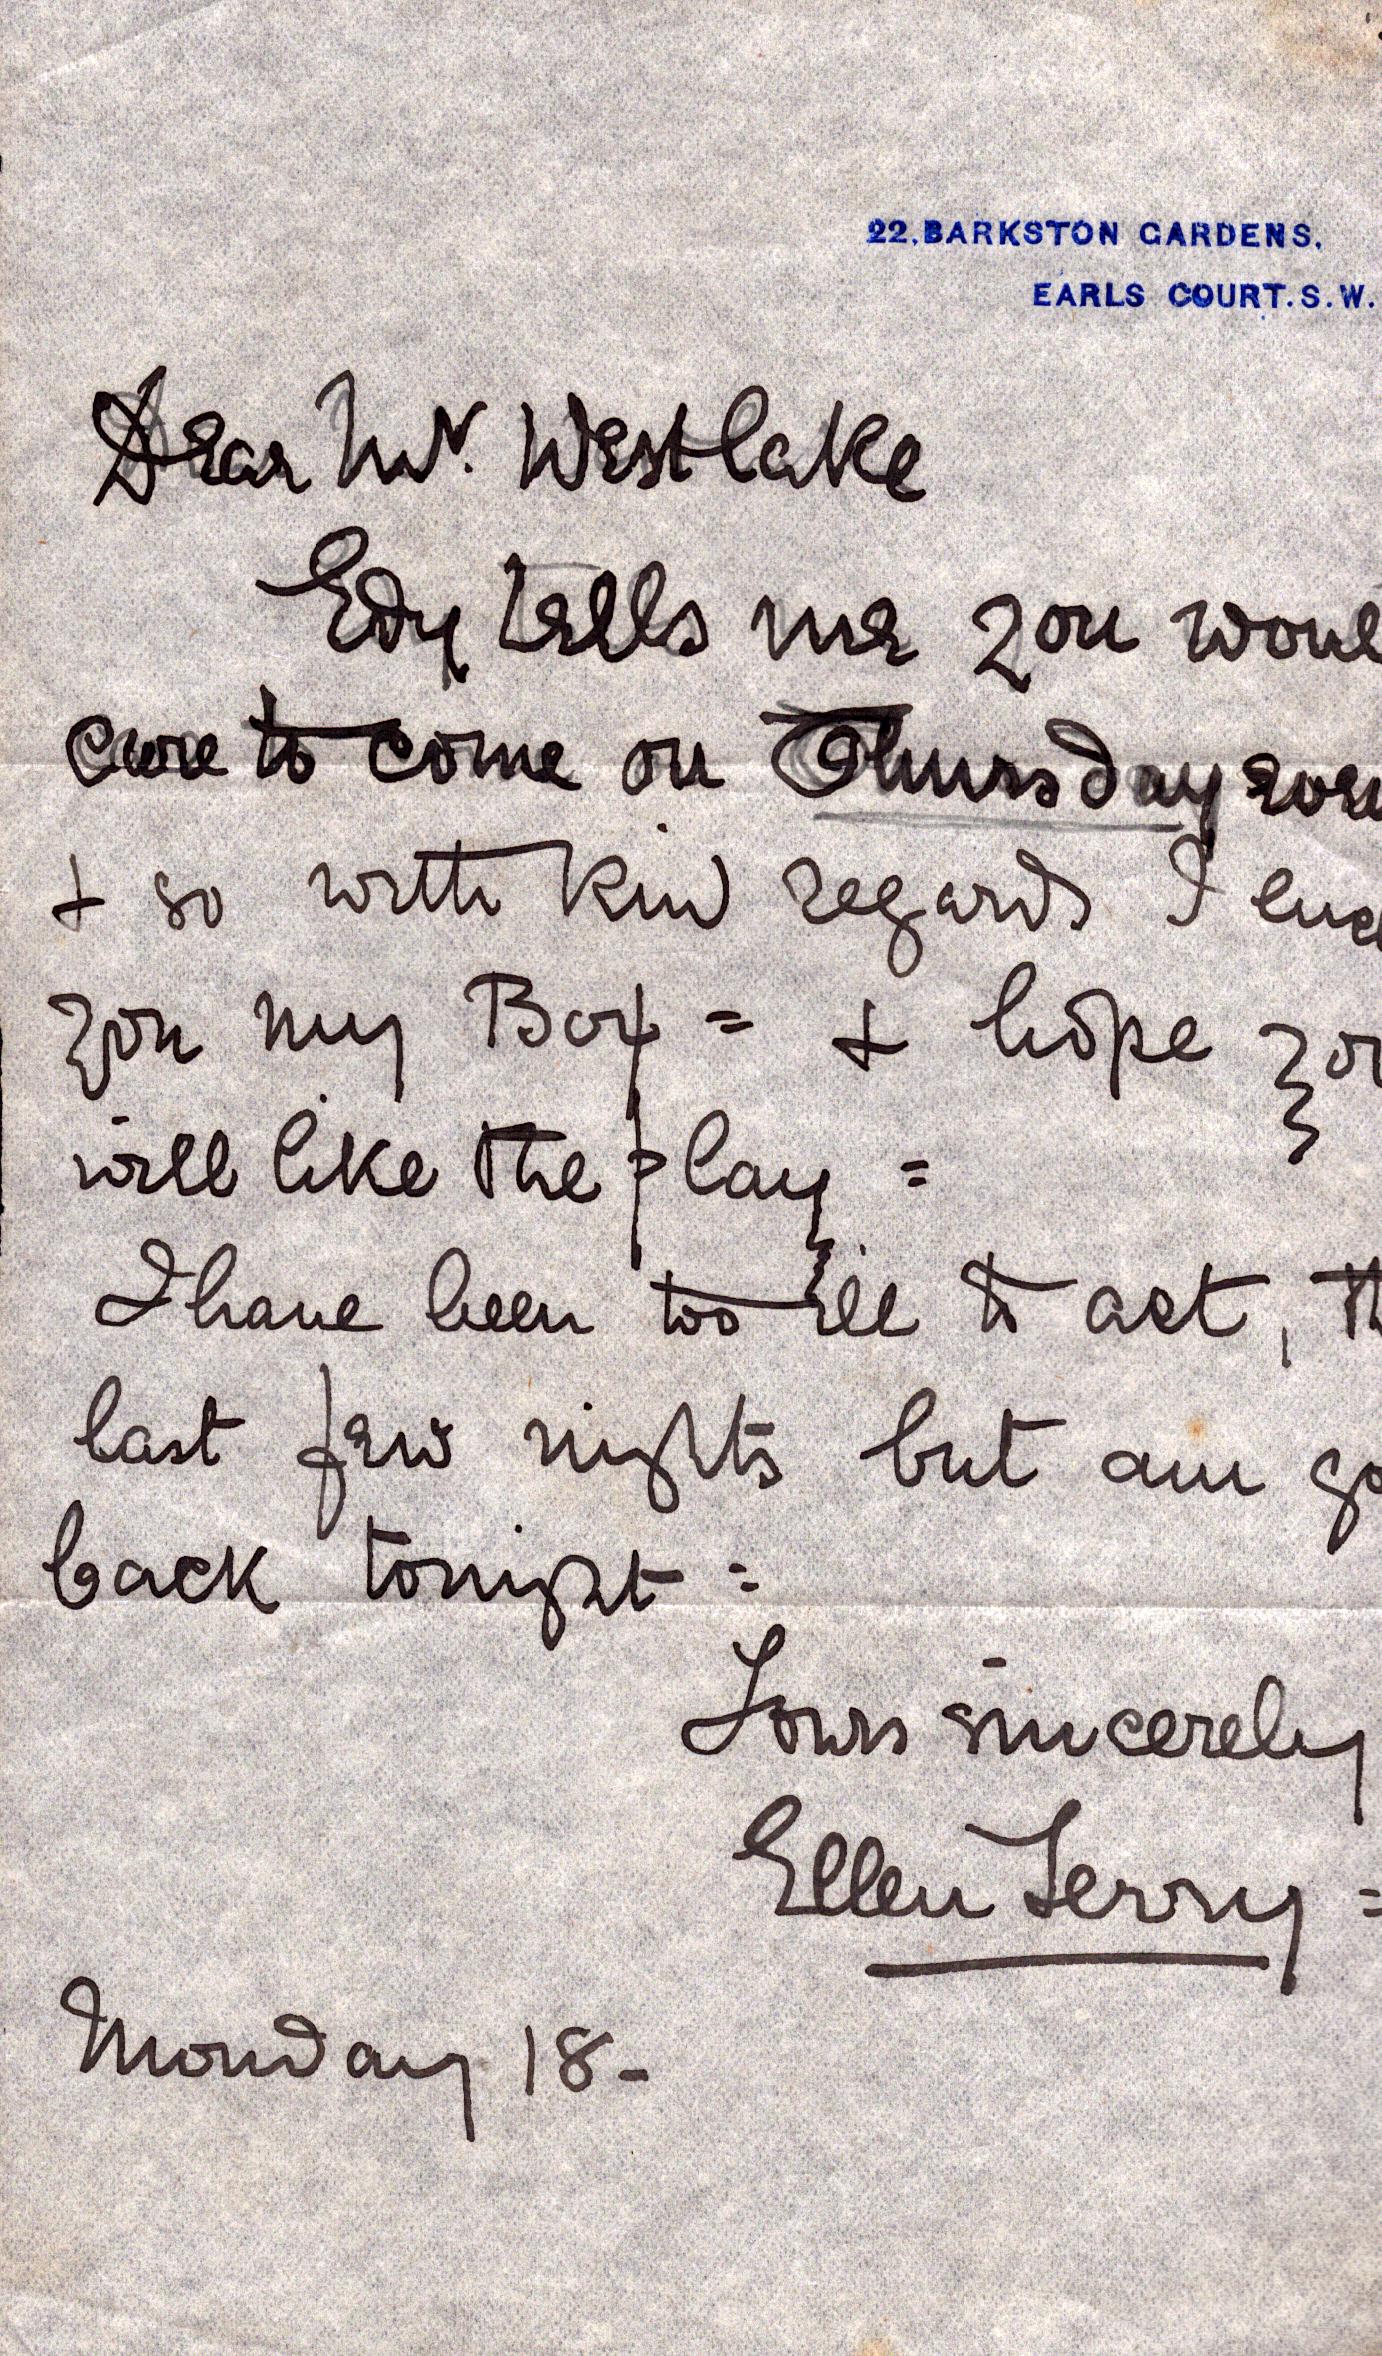 22. BARKSTON GARDENS.
EARLS COURT. S.W.
Dear Mr. Westlake
Edy tells me you woul
care to come on Thursday
& so with kind regards I encl
you my Box = & hope you
will like the play =
I have been too ill to act, th
last few nights but am go
back tonight =
Yours sincerely
Ellen Terry =
Monday 18-